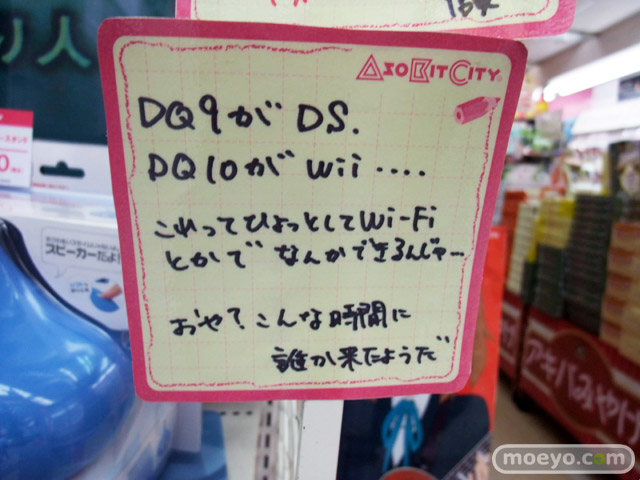 り人
ASOBITCITY
DQ9が DS.
DQ10が Wii ....
これってひょっとしてWi-Fi
とかで なんかできるんじゃ…
おや？こんな時間に
誰か来たようだ
スピーカーだよ!
アキバみやげ
moeyo.com